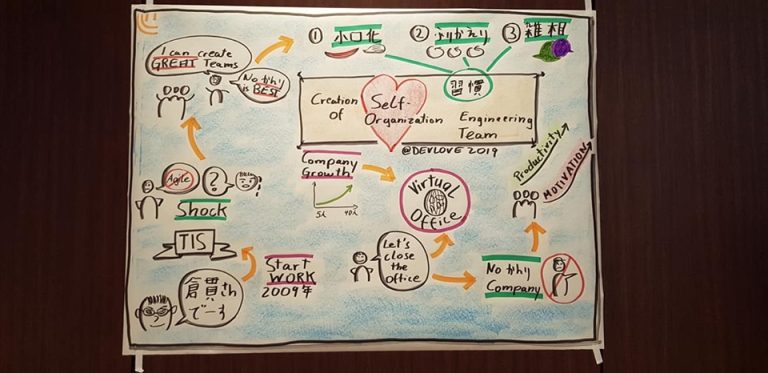 I can create
GREAT Teams
No かんり
is BEST
① 小口化
② ふりかえり
③ 雑相
習慣
Creation
of
Self-
Organization
Engineering
Team
@DEVLOVE 2019
Company
Growth
5人
40人
Virtual
Office
Productivity
MOTIVATIONS
Agile
?
Shock
TIS
倉貫さん
でーす
Start
WORK
2009年
Let's
close
the
office
No かんり
Company